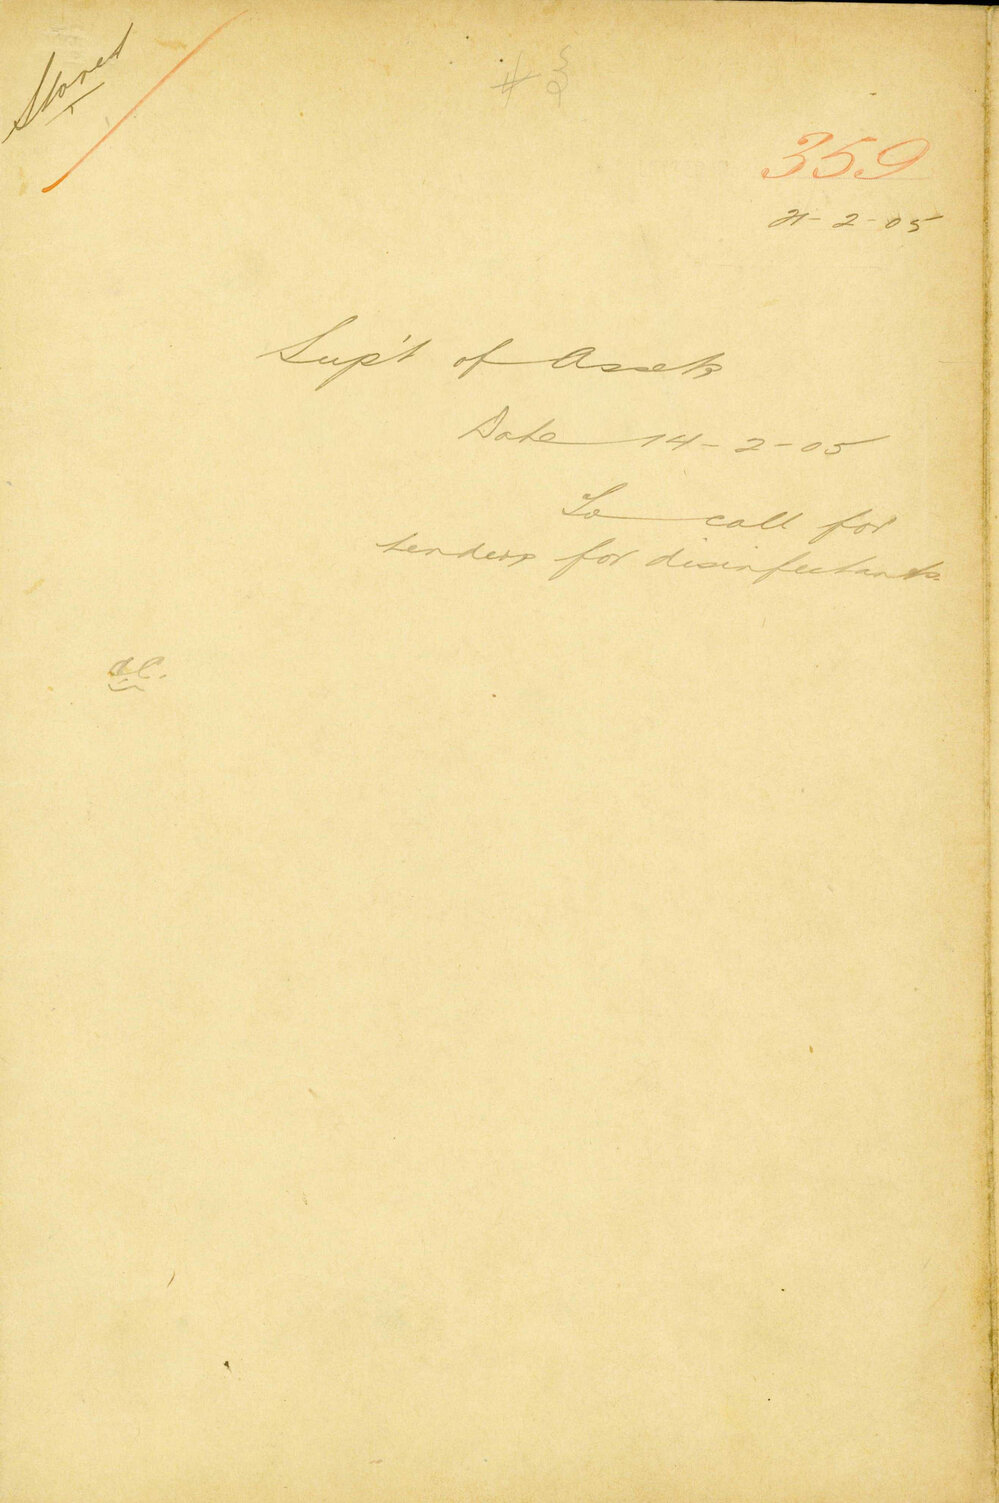 Stores
359
21-2-05
Sup't of Assets
Date 14-2-05
To call for
tenders for disinfectants.